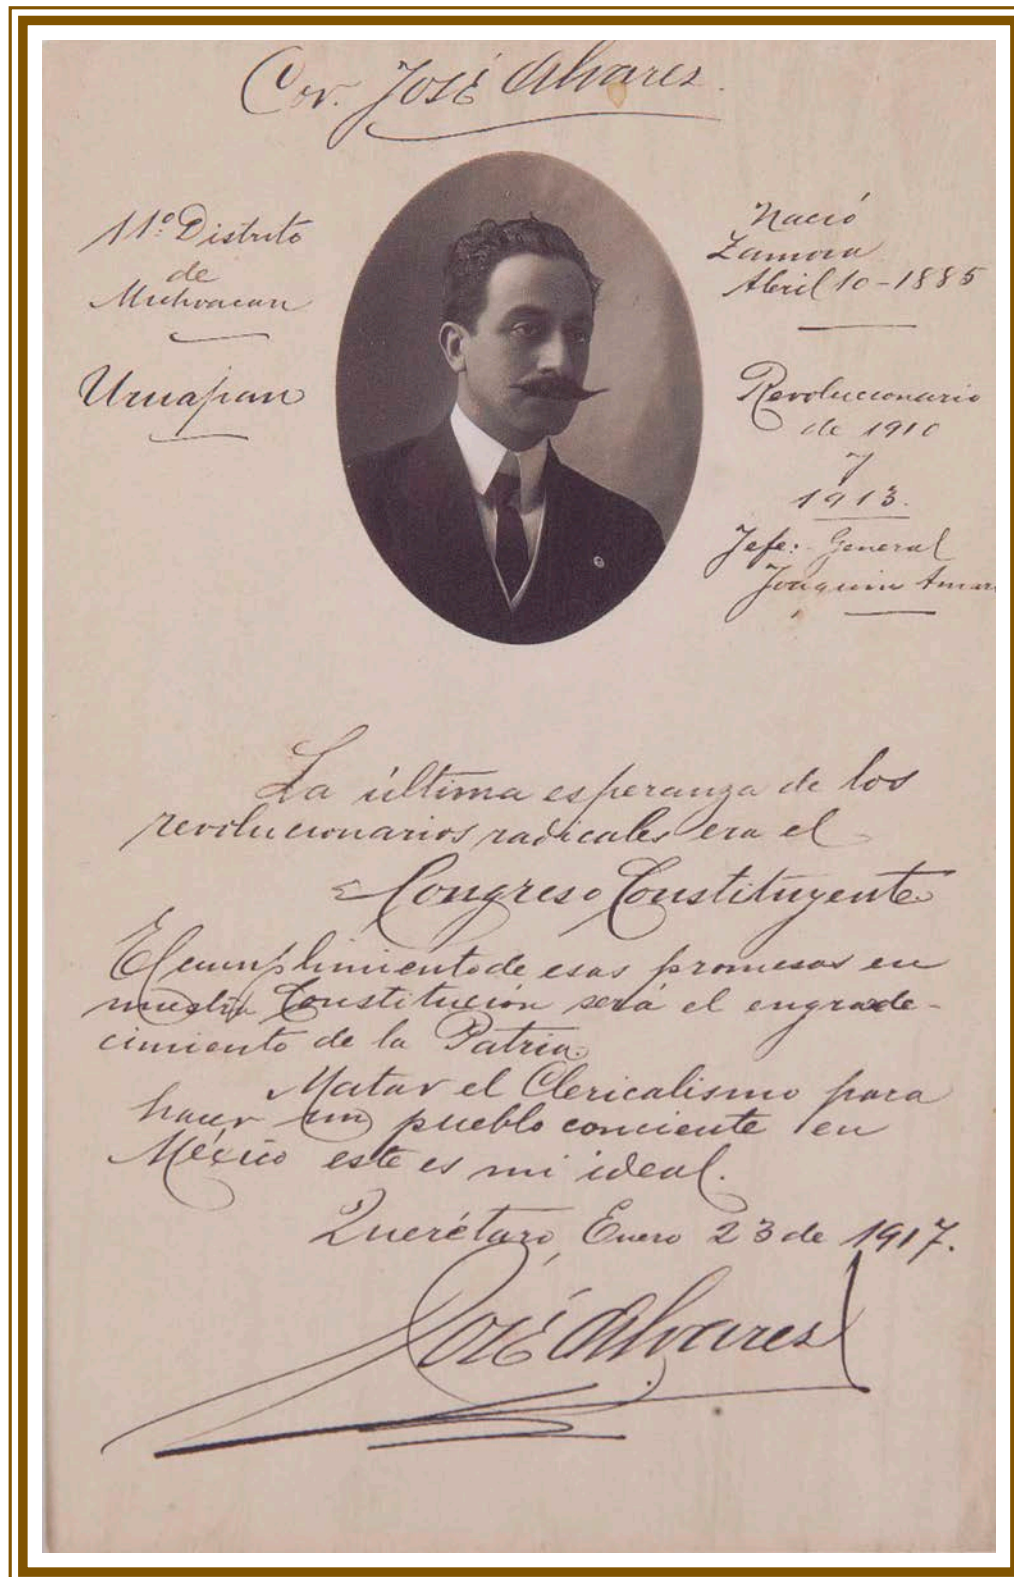 Cor. José Alvarez.
11º Distrito
de
Michoacan
Uruapan
Nació
Zamora
Abril 10-1885
Revolucionario
de 1910
y
1913.
Jefe: General
Joaquin Amaro
La última esperanza de los
revolucionarios radicales era el
Congreso Constituyente.
El cumplimiento de esas promesas en
nuestra Constitución será el engrade-
cimiento de la Patria.
Matar el Clericalismo para
hacer un pueblo conciente en
México este es mi ideal.
Querétaro, Enero 23 de 1917.
José Alvarez